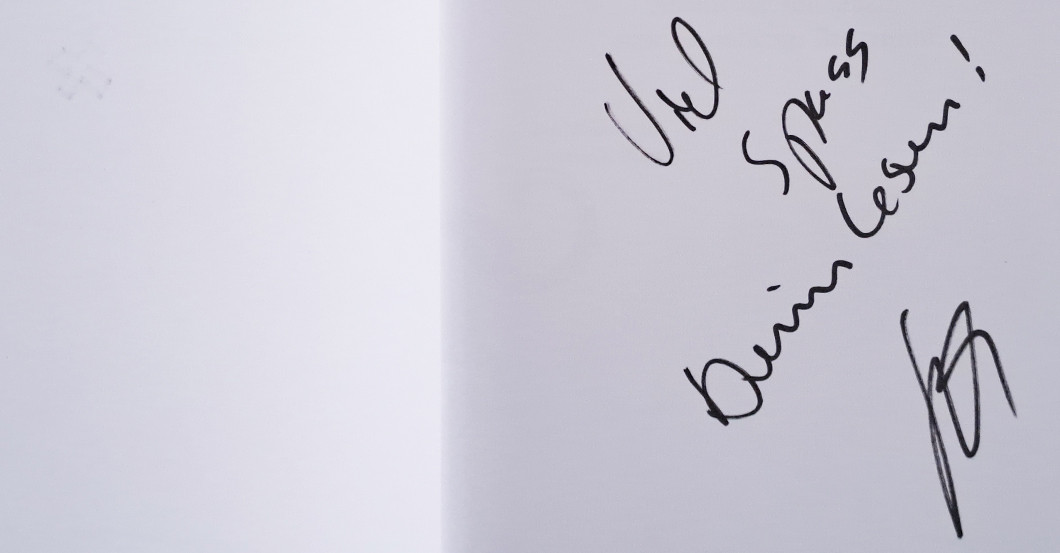 Viel
Spass
Beim Lesen!